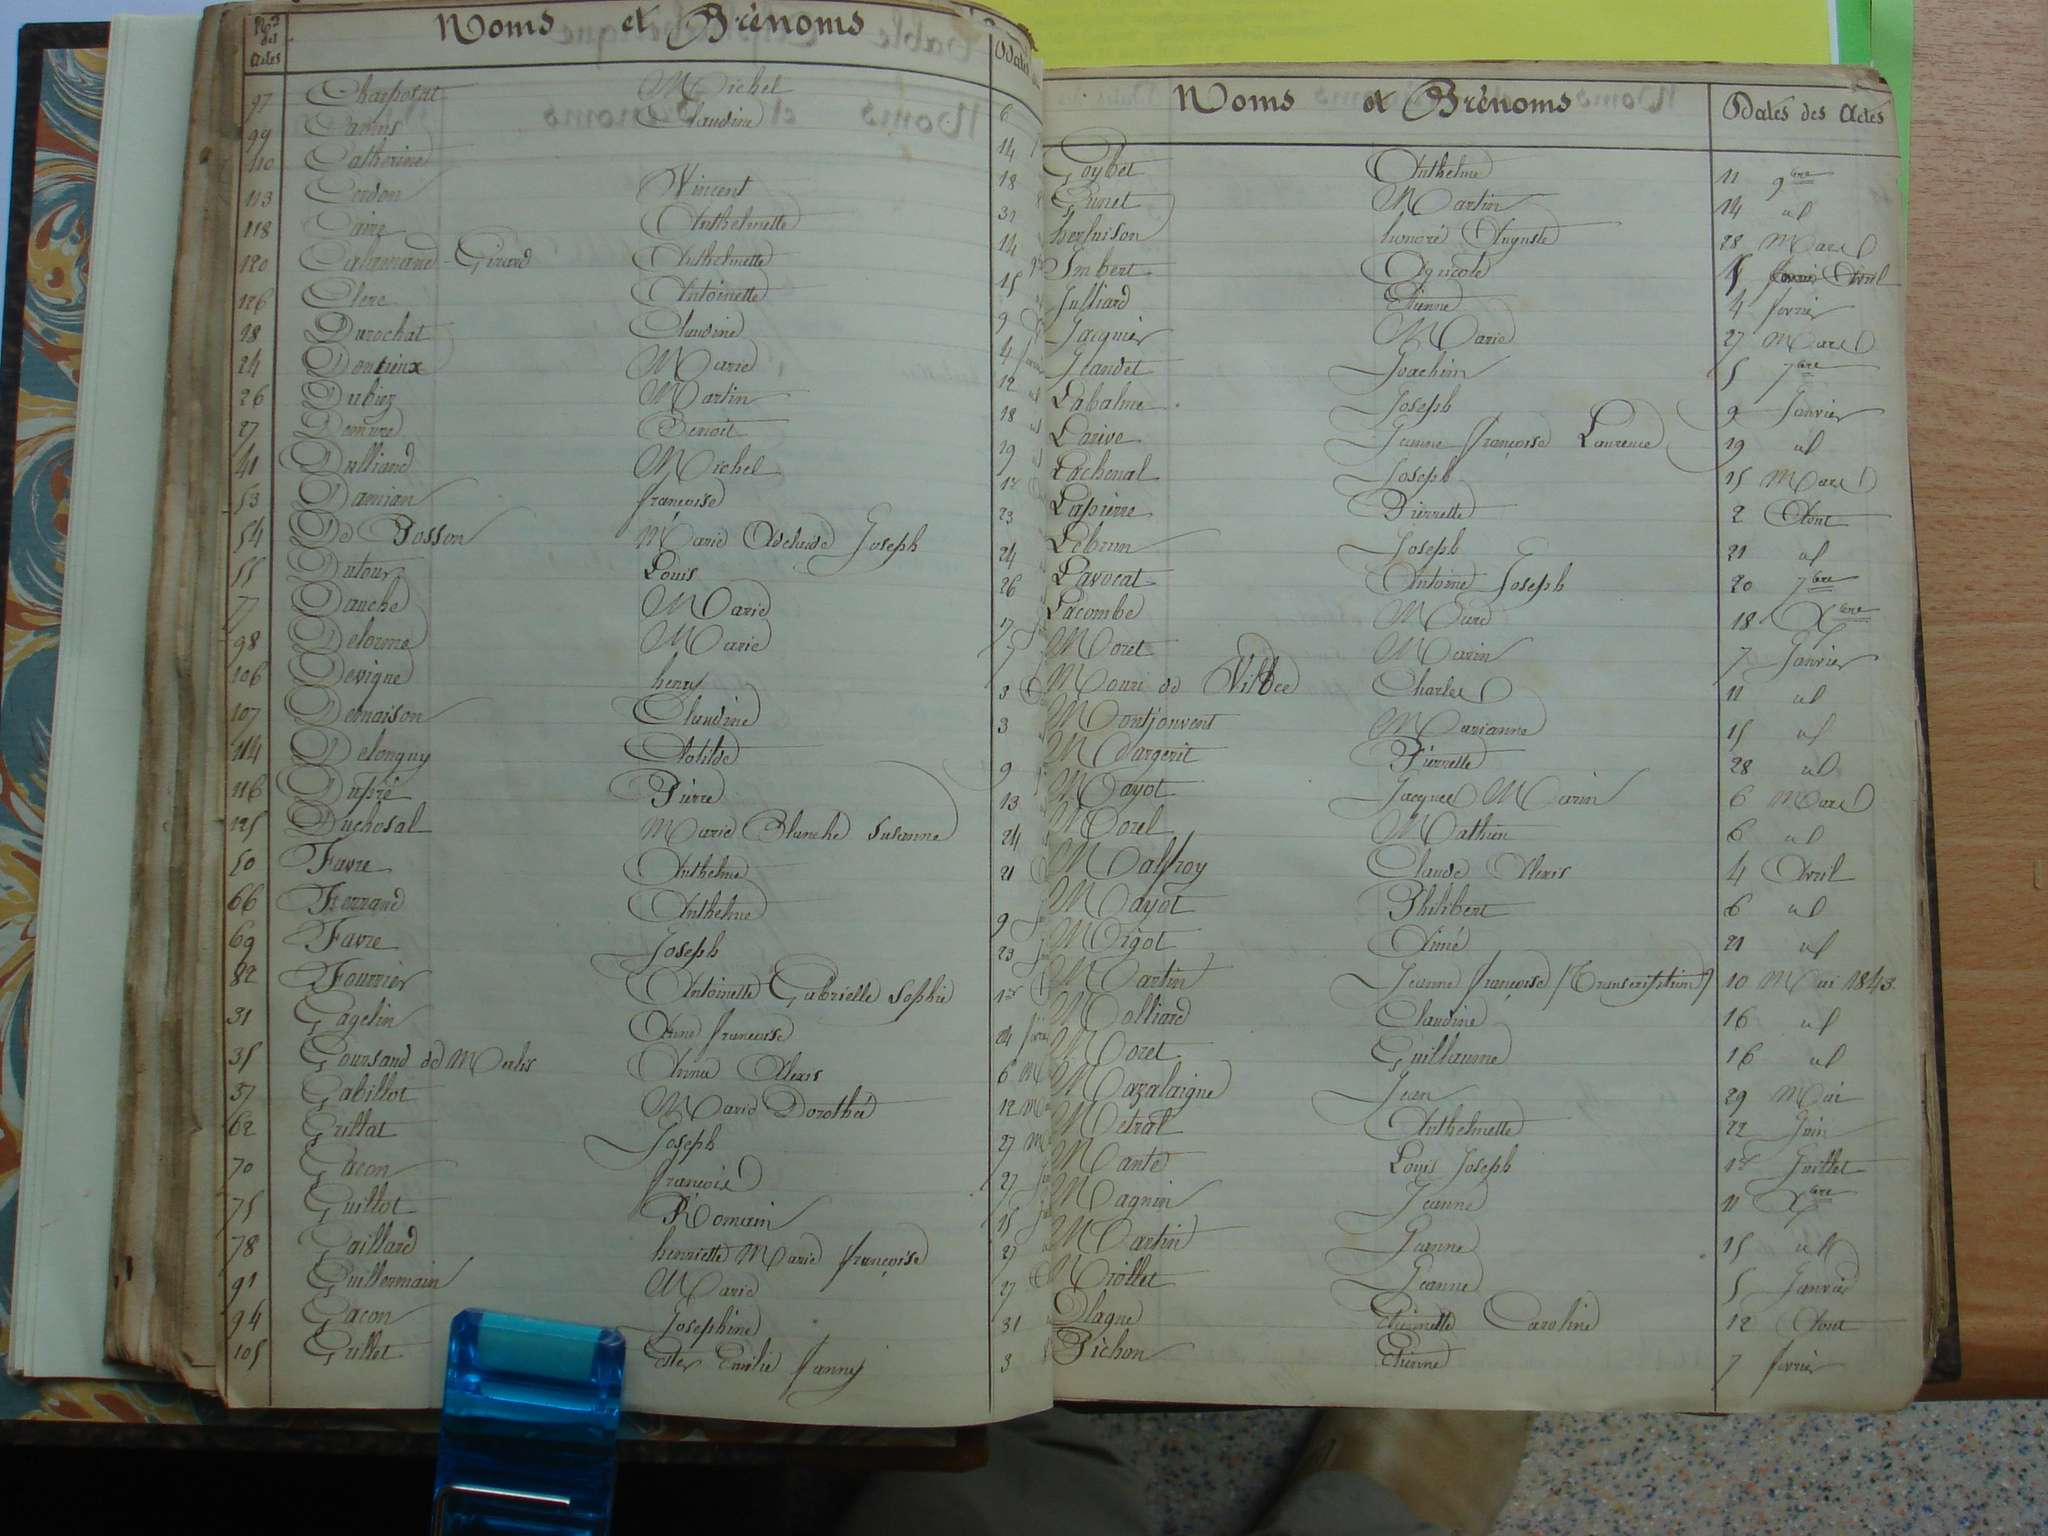 Nos des Actes Noms et Prénoms Dates
97 Charposat Michel 6
99 Camus Claudine 14
110 Catherine 18
113 Cordon Vincent 31
118 Caire Anthelmette 14
120 Calamand-Girard Anthelmette 15
126 Clerc Antoinette 9
18 Durochat Claudine 4
24 Dontieux Marie 12
26 Dubiez Martin 18
27 Demure Benoit 19
41 Dulliand Michel 1er
53 Damian françoise 23
54 De Bosson Marie Adelaide Joseph 24
55 Dutour Louis 26
77 Danche Marie 17
98 Delorme Marie 7
106 Devigne henry 3
107 Demaison Claudine 3
114 Delonguy Clotilde 9
116 Dupré Pierre 13
125 Duchosal Marie Blanche Susanne 24
50 Favre Anthelme 21
66 Ferrand Anthelme 9
69 Favre Joseph 23
82 Fournier Antoinette Gabrielle Sophie 1er
31 Gagelin Anne françoise 24
35 Goursaud de Merlis Anna Alexis 6
37 Gabillot Marie Dorothée 12
62 Grillat Joseph 27
70 Gacon françois 27
75 Guillot Romain 15
78 Gaillard henriette Marie françoise 27
91 Guillermain Marie 27
94 Gacon Josephine 31
105 Grillet Ester Emilie fanny 3
Noms et Prénoms Dates des Actes
Goybet Anthelme 11 9bre
Grinet Martin 14 id
herluison honoré Auguste 28 Mars
Imbert Agricole 5 Avril
Julliard Etienne 4 fevrier
Jacquier Marie 27 Mars
Jeandet Joachim 5 7bre
Labalme Joseph 9 Janvier
Larive Jeanne françoise Laurence 19 id
Lachenal Joseph 15 Mars
Lapierre Pierrette 2 Aout
Lebrun Joseph 21 id
Lavocat Antoine Joseph 20 7bre
Lacombe Marie 18 Xbre
Moret Marin 7 Janvier
Mouri de Villee Charles 11 id
Montjouvent Marianne 15 id
Margerit Pierrette 28 id
Mayot Jacques Marin 6 Mars
Morel Mathieu 6 id
Malfroy Claude Alexis 4 Avril
Mayot Philibert 6 id
Migot Aimé 21 id
Martin Jeanne françoise (Transcription) 10 Mai 1843
Molliard Claudine 16 id
Moret Guillaume 16 id
Mazalaigue Jean 29 Mai
Metral Anthelmette 22 Juin
Mante Louis Joseph 1er Juillet
Magnin Jeanne 11 Xbre
Martin Jeanne 15 id
Niollet Jeanne 5 Janvier
Plagne Etiennette Caroline 12 Aout
Pichon Etienne 7 fevrier